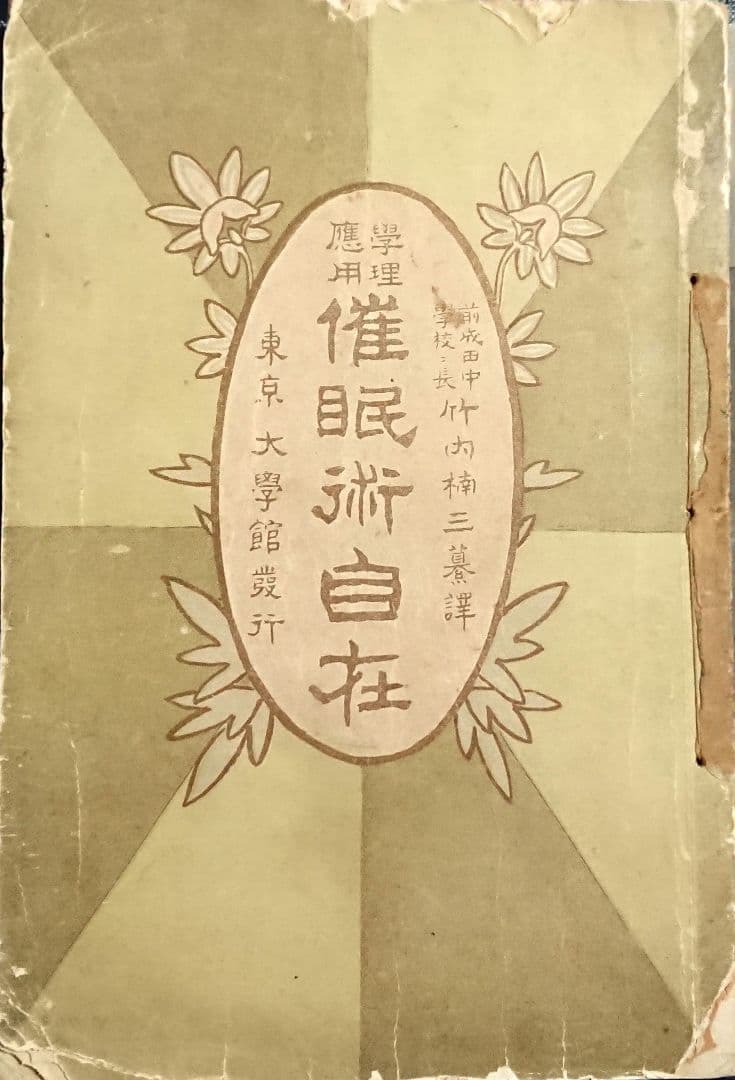 前成田中
學校々長
竹内楠三纂譯
學理
應用
催眠術自在
東京 大學館發行